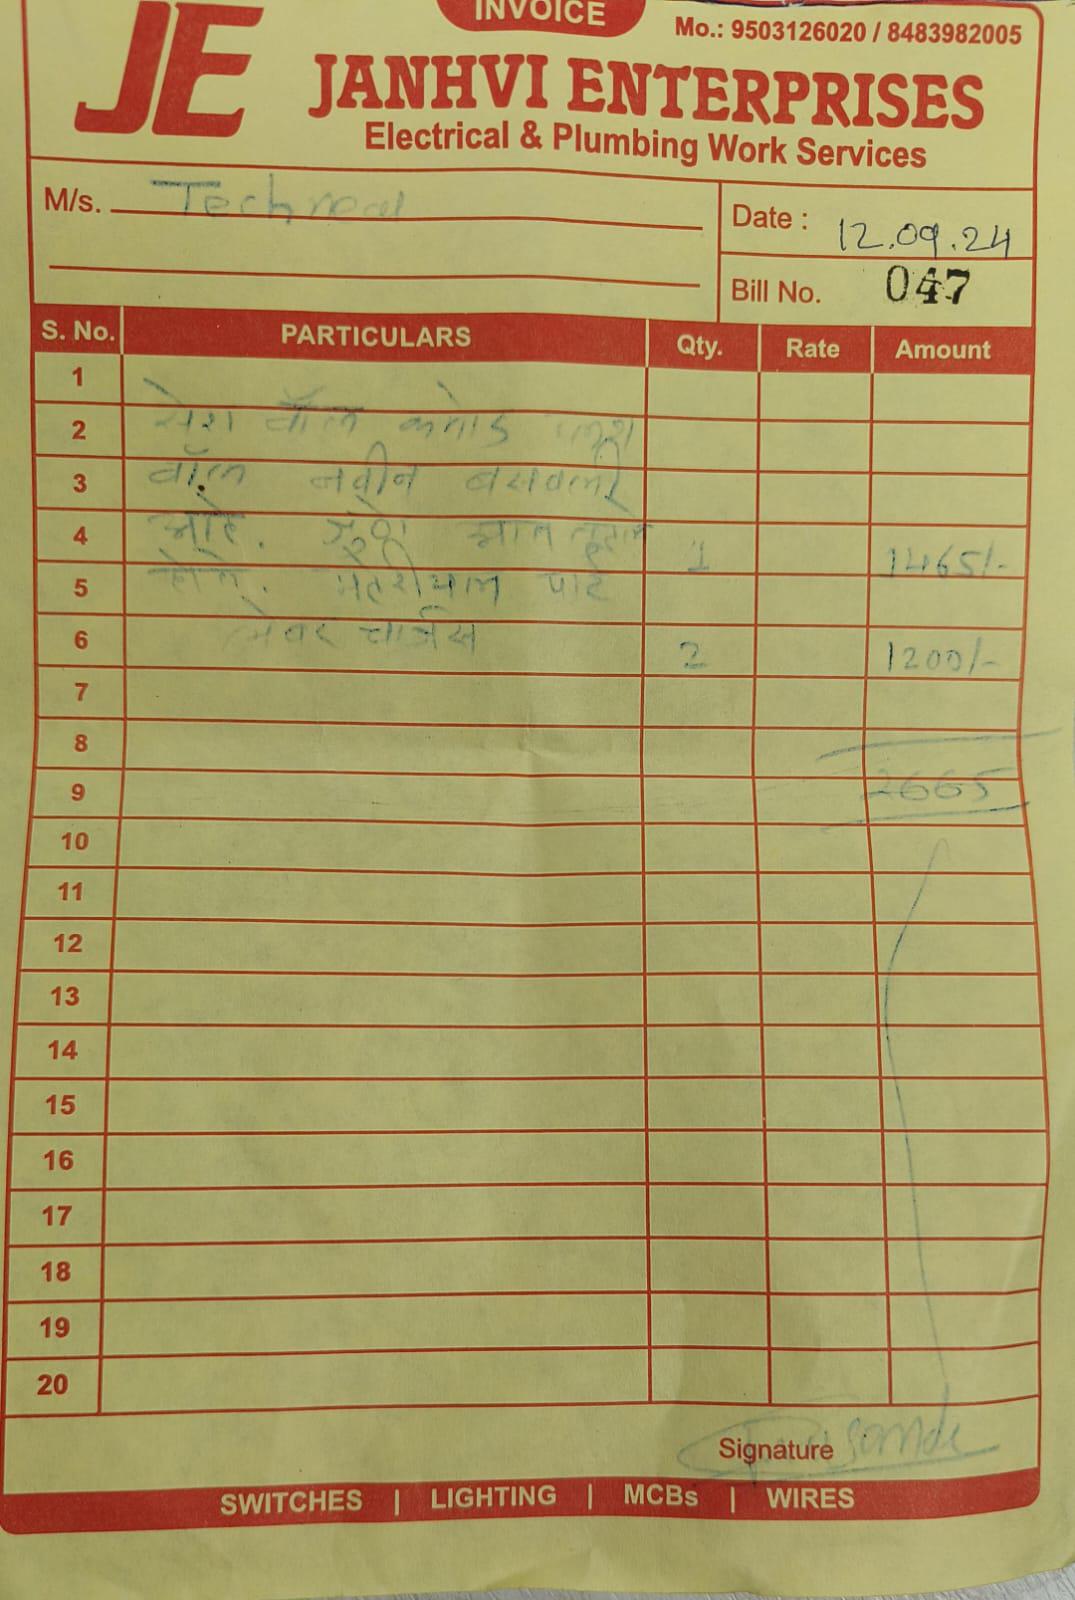 INVOICE
Mo.: 9503126020 / 8483982005
JE
JANHVI ENTERPRISES
Electrical & Plumbing Work Services
M/s.
Date : 12.09.24
Bill No. 047
S. No. PARTICULARS Qty. Rate Amount
1
2 सेरा वॉल कमोड
3 वॉल नवीन बसवली
4 आहे. जुना 1 1465/-
5 होते. मटेरीयल
6 लेबर चार्जस 2 1200/-
7
8
9 2665
10
11
12
13
14
15
16
17
18
19
20
Signature
SWITCHES | LIGHTING | MCBs | WIRES